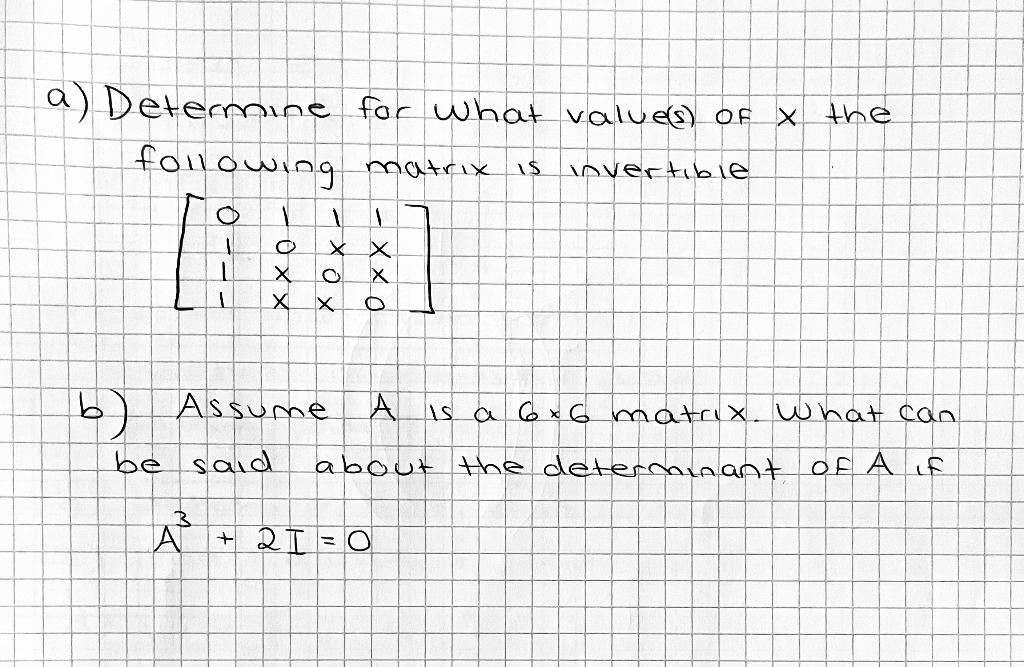 a) Determine for what value(s) of x the
following matrix is invertible
0 1 1 1
1 0 x x
1 x 0 x
1 x x 0
b) Assume A is a 6x6 matrix. What can
be said about the determinant of A if
A³ + 2I = 0